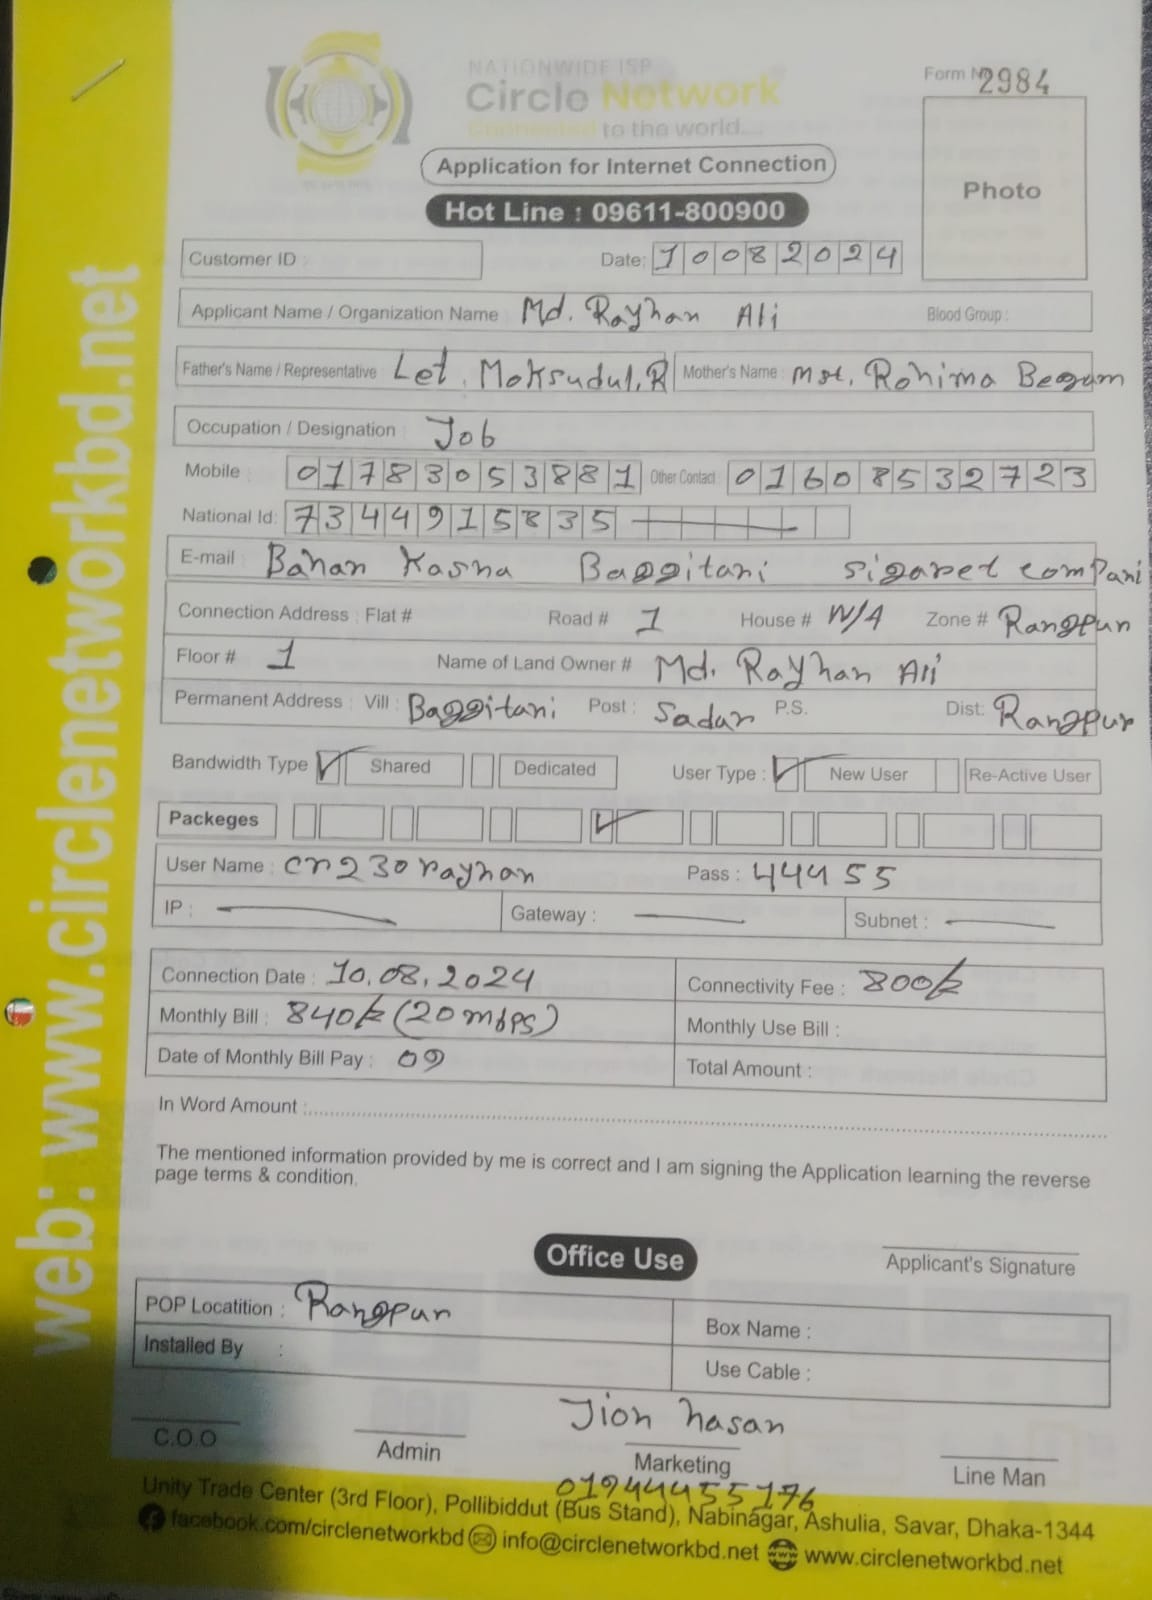 NATIONWIDE ISP
Circle Network
Connected to the world...
Form No 2984
Application for Internet Connection
Photo
Hot Line : 09611-800900
Customer ID : Date: 10082024
Applicant Name / Organization Name : Md. Rayhan Ali Blood Group :
Father's Name / Representative : Let. Moksudul.R Mother's Name : Mst. Rohima Begum
Occupation / Designation : Job
Mobile : 01783053881 Other Contact : 01608532723
National Id: 7344915835
E-mail : Bahan Kasna Baggitani sigaret compani
Connection Address : Flat # Road # 1 House # N/A Zone # Rangpur
Floor # 1 Name of Land Owner # Md. Rayhan Ali
Permanent Address : Vill : Baggitani Post : Sadar P.S. Dist: Rangpur
Bandwidth Type ✓ Shared Dedicated User Type : ✓ New User Re-Active User
Packeges ✓
User Name : cn230rayhan Pass : 44455
IP : Gateway : Subnet :
Connection Date : 10.08.2024 Connectivity Fee : 800/=
Monthly Bill : 840/= (20 mbps) Monthly Use Bill :
Date of Monthly Bill Pay : 09 Total Amount :
In Word Amount :
The mentioned information provided by me is correct and I am signing the Application learning the reverse
page terms & condition.
Office Use
Applicant's Signature
POP Locatition : Rangpur Box Name :
Installed By : Use Cable :
Jion hasan
C.O.O Admin Marketing Line Man
01944455176
Unity Trade Center (3rd Floor), Pollibiddut (Bus Stand), Nabinagar, Ashulia, Savar, Dhaka-1344
facebook.com/circlenetworkbd info@circlenetworkbd.net www.circlenetworkbd.net
web: www.circlenetworkbd.net